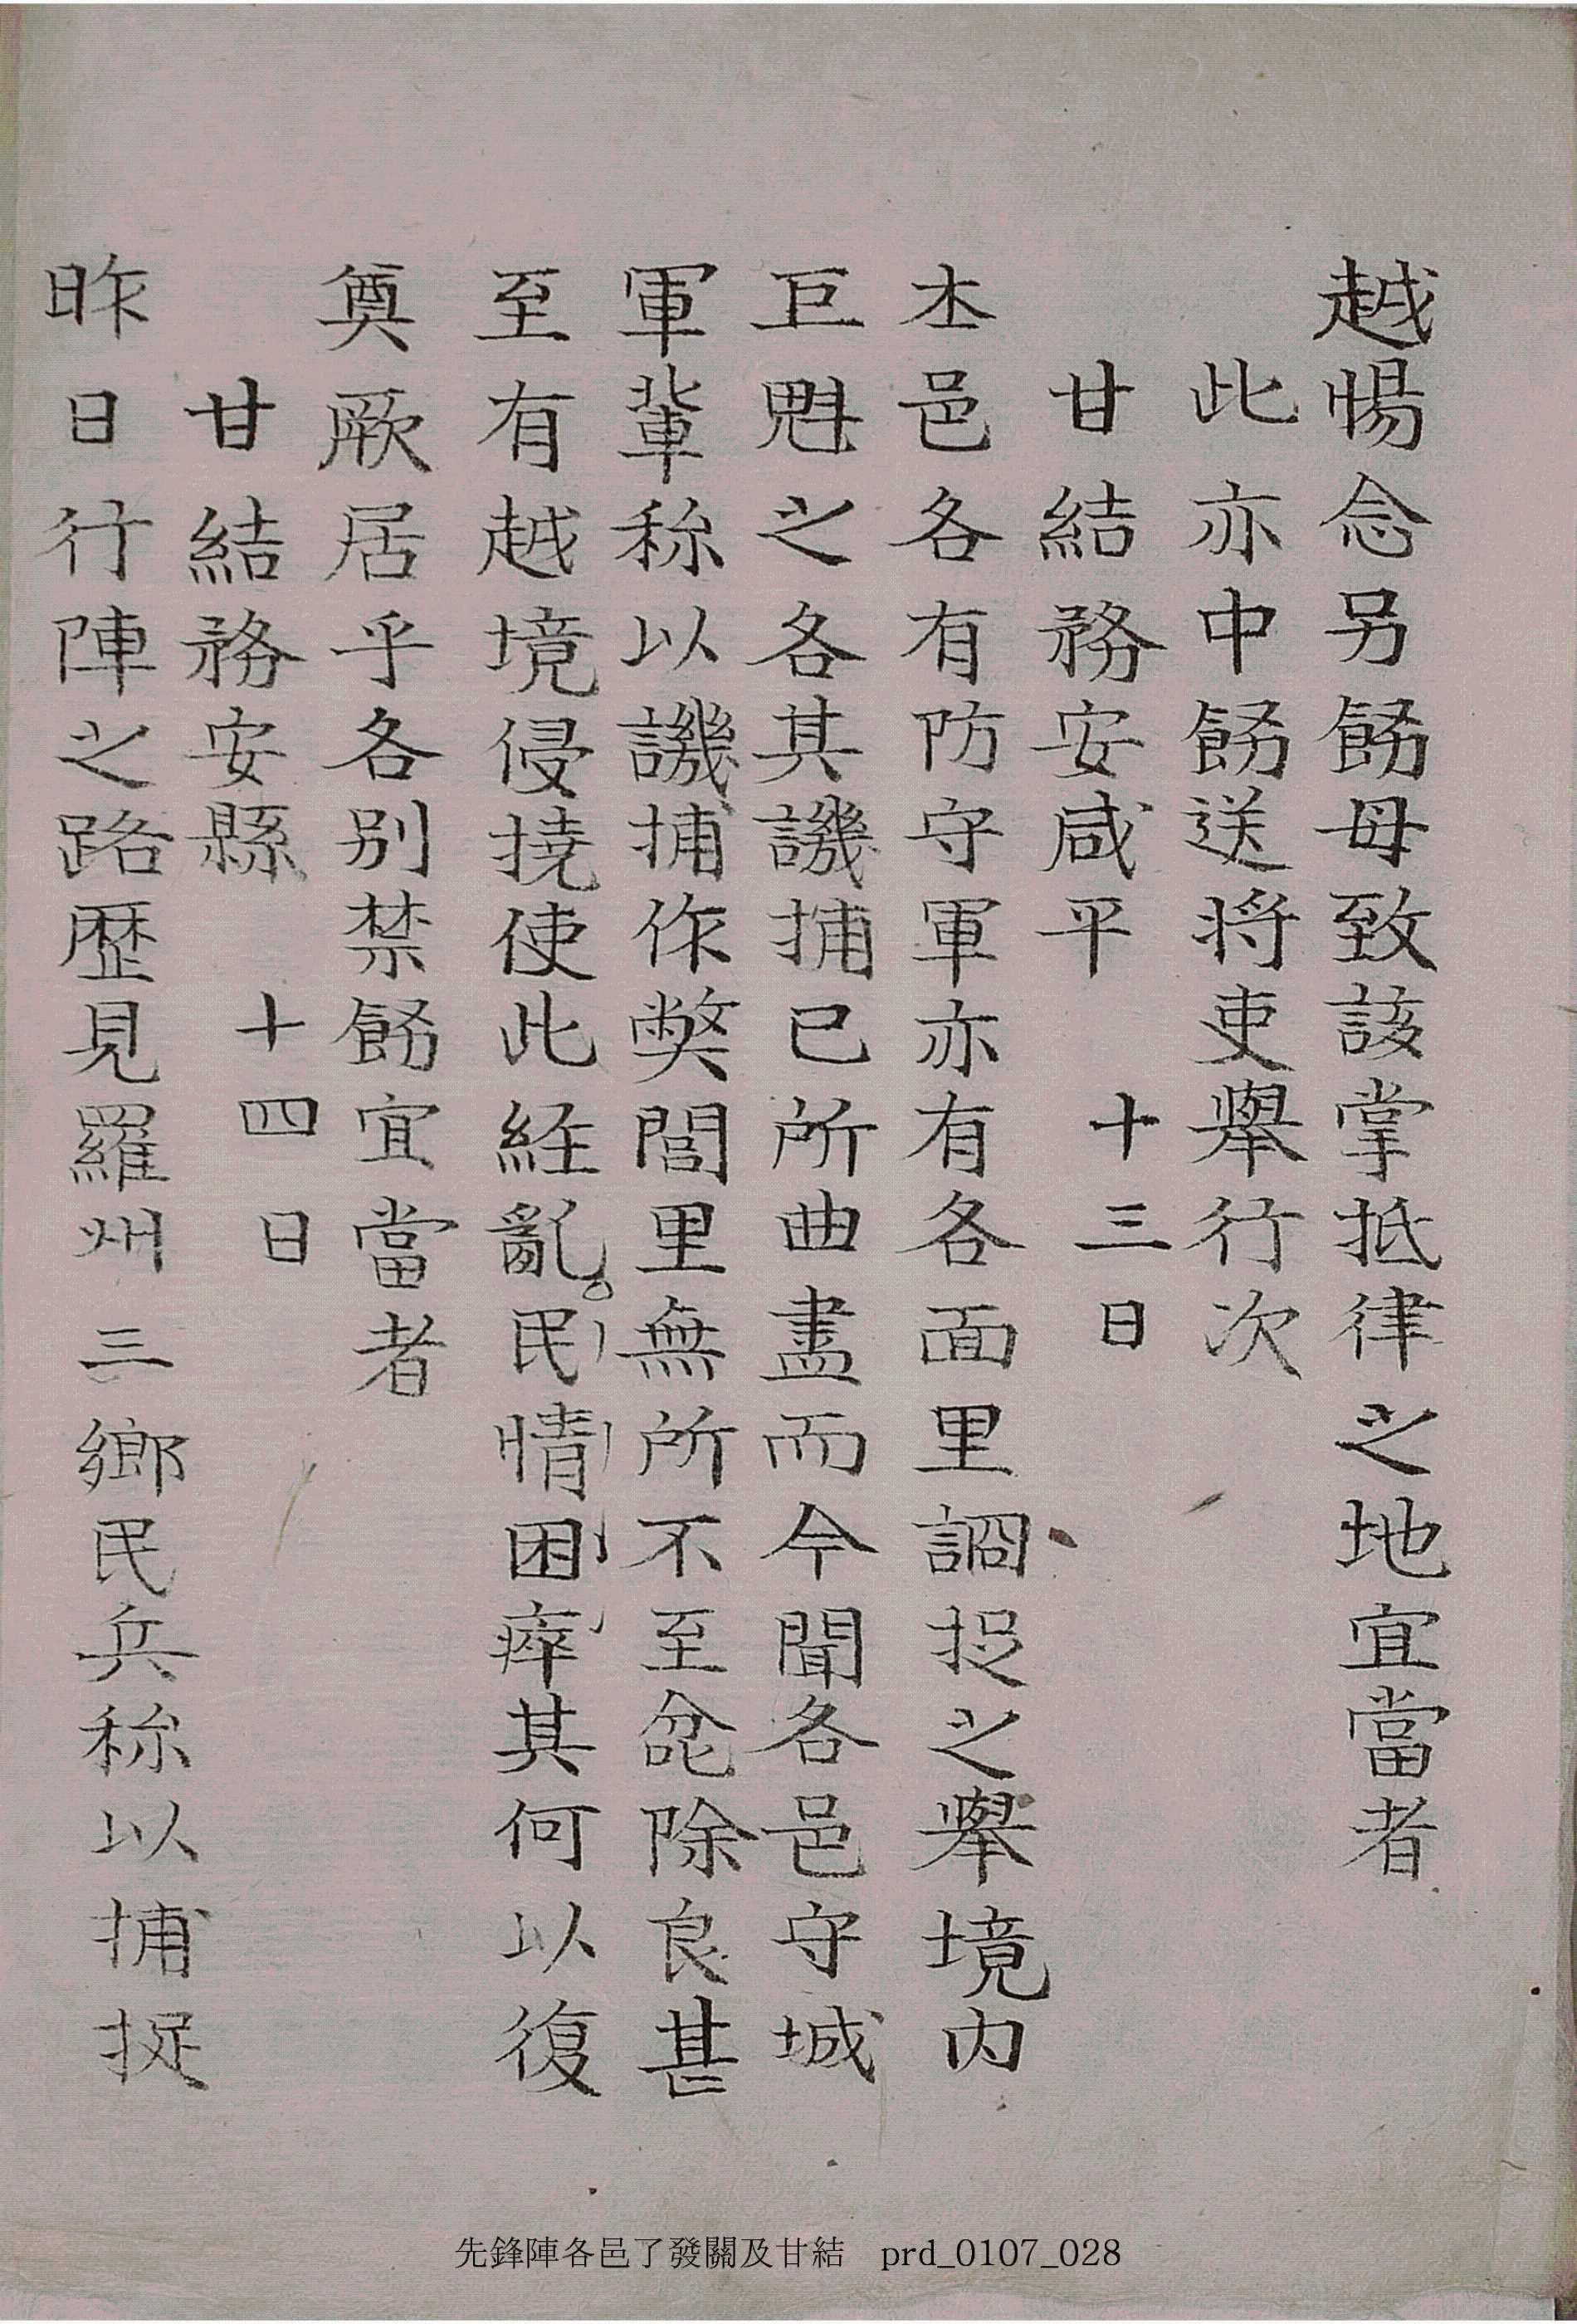 越惕念另飭毋致該掌抵律之地宜當者
此亦中飭送將吏擧行次
甘結務安咸平 十三日
本邑各有防守軍亦有各面里詗捉之擧境內
巨魁之各其譏捕已所曲盡而今聞各邑守城
軍輩称以譏捕作獘閭里無所不至忿除良甚
至有越境侵撓使此経亂民情困瘁其何以復
奠厥居乎各別禁飭宜當者
甘結務安縣 十四日
昨日行陣之路歷見羅州三鄉民兵称以捕捉
先鋒陣各邑了發關及甘結 prd_0107_028